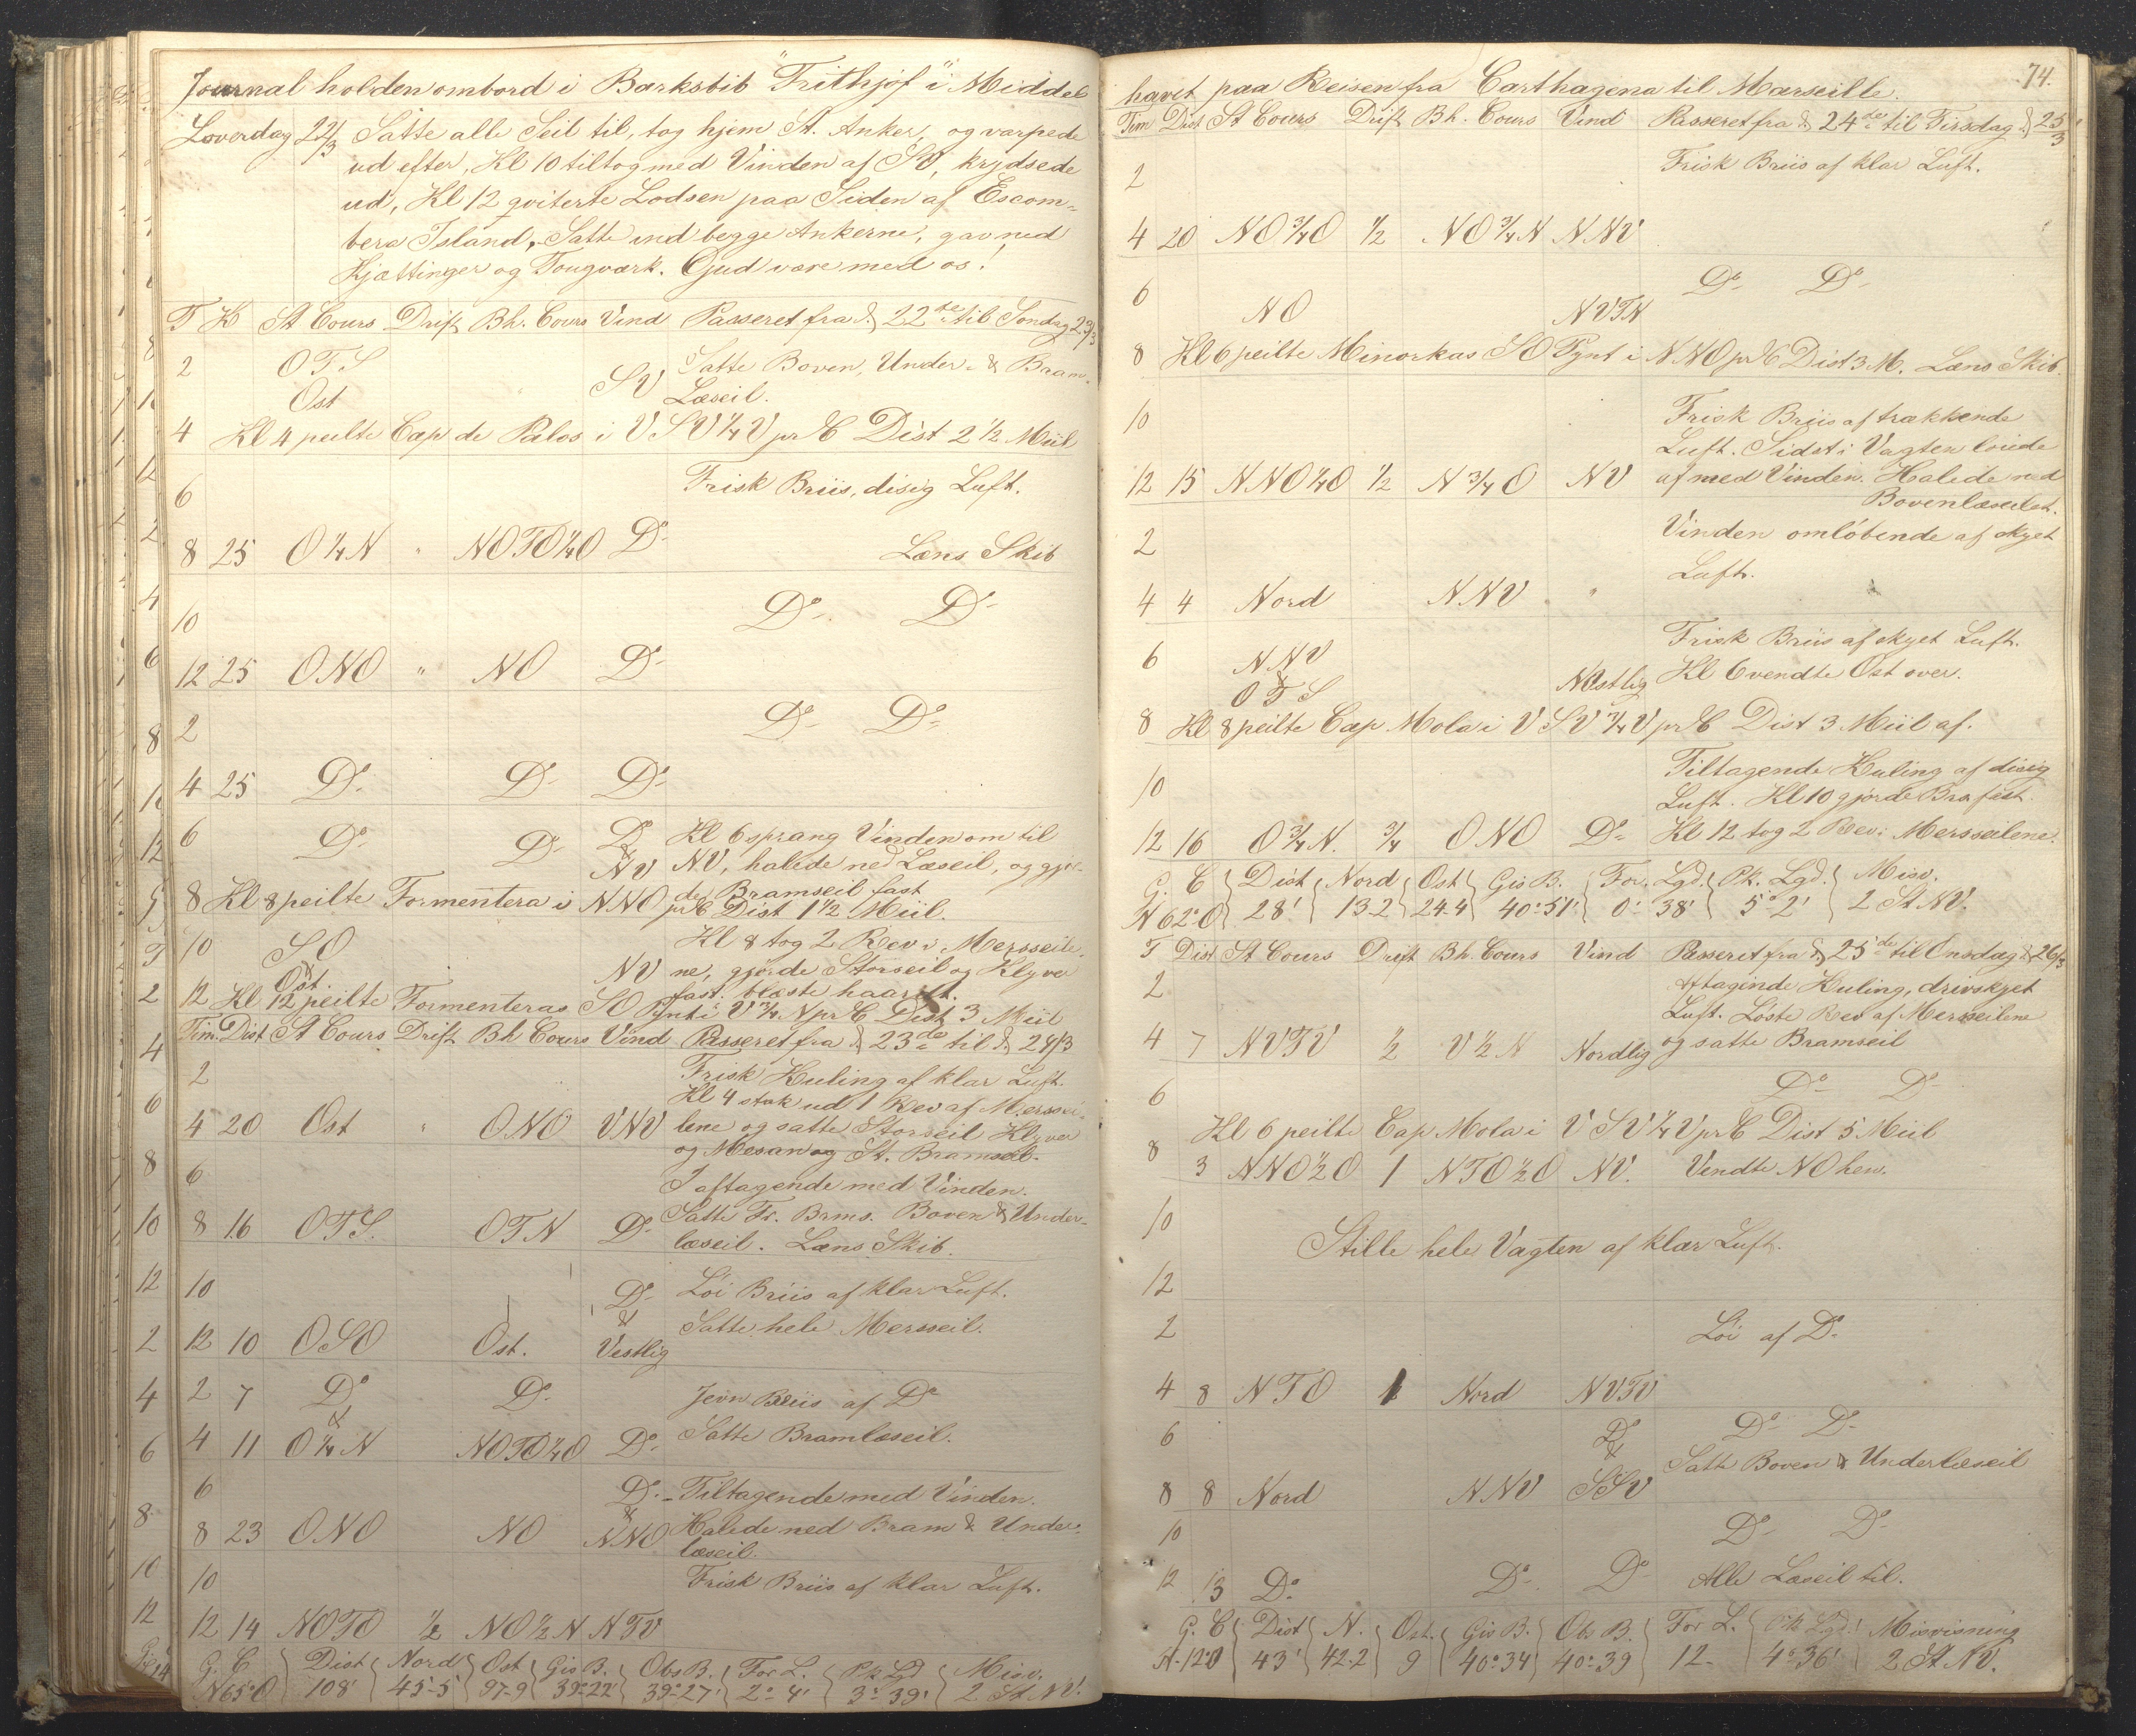 Journal holden ombord i Barkskib "Frithjof" i Middel
Loverdag 22/3 Satte alle Seil til, tog hjem St. Anker, og varpede
ud efter, Kl 10 tiltog med Vinden af SO, krydsede
ud, Kl 12 qviterte Lodsen paa Siden af Escom-
bera Island, Satte ind begge Ankerne, gav ned
Kjættinger og Tougværk. Gud være med os!
T K St Cours Drift Bh. Cours Vind Passeret fra d 22de til Søndag 23/3
2 OTS Satte Boven, Under- & Bram-
Ost SV Læseil.
4 Kl 4 peilte Cap de Palos i VSV 1/4 V pr C Dist 2 1/2 Miil
6 Frisk Briis, disig Luft.
8 25 O 1/4 N " NOTO 1/4 O Do Læns Skib
10 Do Do
12 25 ONO " NO Do
2 Do Do
4 25 Do Do Do
6 Do Do Do Kl 6 sprang Vinden om til
& NV NV, halede ned Læseil, og gjor-
de Bramseil fast
8 Kl 8 peilte Formentera i NNO pr C Dist 1 1/2 Miil.
10 SO Kl 8 tog 2 Rev i Mersseile-
& Ost. NV ne, gjorde Storseil og Klyver
fast. blæste haardt.
12 Kl 12 peilte Formenteras SO Pynt i V 3/4 N pr C Dist 3 Miil
Tim. Dist St Cours Drift Bh Cours Vind Passeret fra d 23de til d 24/3
2 Frisk Kuling af klar Luft.
Kl 4 stak ud 1 Rev af Merssei-
4 20 Ost " ONO VNV lene og satte Storseil Klyver
og Mesan og St. Bramseil.
6 I aftagende med Vinden.
Satte Fr. Brms. Boven & Under-
8 16 OTS. OTN Do læseil. Læns Skib.
10 Do Løi Briis af klar Luft.
& Satte hele Mersseil.
12 10 OSO Ost. Vestlig
2 7 Do Do Jevn Briis af Do
&
4 11 O 1/4 N NOTO 1/4 O Do Satte Bramlæseil.
6 Do Tiltagende med Vinden.
& Halede ned Bram & Under-
8 23 ONO NO NNO læseil.
10 Frisk Briis af klar Luft.
12 14 NOTO 1/2 NO 1/2 N NTV
G. C Dist Nord Ost Gis B. Obs B. For L. Pk Lgd Misv.
N 65° O 108' 45-5 97-9 39°22' 39°27' 2° 4' 3° 39' 2 St NV.
74.
havet paa Reisen fra Carthagena til Marseille.
Tim Dist St Cours Drift Bh. Cours Vind Passeret fra d 24de til Tirsdag d 25/3
2 Frisk Briis af klar Luft.
4 20 NO 3/4 O 1/2 NO 3/4 N NNV
6 Do Do
NO NVTN
8 Kl 6 peilte Minorkas SO Pynt i NNO pr C Dist 3 M. Læns Skib.
10 Frisk Briis af trækkende
Luft. Sidst i Vagten løiede
12 15 NNO 1/4 O 1/2 N 3/4 O NV af med Vinden. Halede ned
Bovenlæseilet.
2 Vinden omløbende af skyet
Luft.
4 4 Nord NNV "
6 NNV Frisk Briis af skyet Luft.
& OTS NOstlig Kl 6 vendte Ost over.
8 Kl 8 peilte Cap Mola i VSV 3/4 V pr C Dist 3 Miil af.
10 Tiltagende Kuling af disig
Luft. Kl 10 gjorde Bra fast.
12 16 O 3/4 N. 3/4 ONO Do Kl 12 tog 2 Rev i Mersseilene.
G. C Dist Nord Ost Gis B. For. Lgd. Pk. Lgd. Misv.
N 62° O 28' 13-2 24-4 40°51' 0° 38' 5° 2' 2 St NV.
T Dist St Cours Drift Bh. Cours Vind Passeret fra d 25de til Onsdag d 26/3
2 Aftaginde Kuling, drivskyet
Luft. Løste Rev af Mersseilene
4 7 NVTV 1/2 V 1/2 N Nordlig og satte Bramseil
6 Do Do
Kl 6 peilte Cap Mola i VSV 1/4 V pr C Dist 5 Miil
8 3 NNO 1/2 O 1 NTO 1/2 O NV. Vendte NO hen.
10
Stille hele Vagten af klar Luft.
12
2 Løi af Do
4 8 NTO 1 Nord NVTV
6 Do Do Do
& Satte Boven & Underlæseil
8 8 Nord NNV SSV
10 Do Do
12 13 Do Do Do Alle Læseil til.
G. C Dist N. Ost. Gis B. Obs B. For L. Pk Lgd. Misvisning
N. 12° O 43' 42.2 9 40°34' 40°39 12- 4°36' 2 St NV.